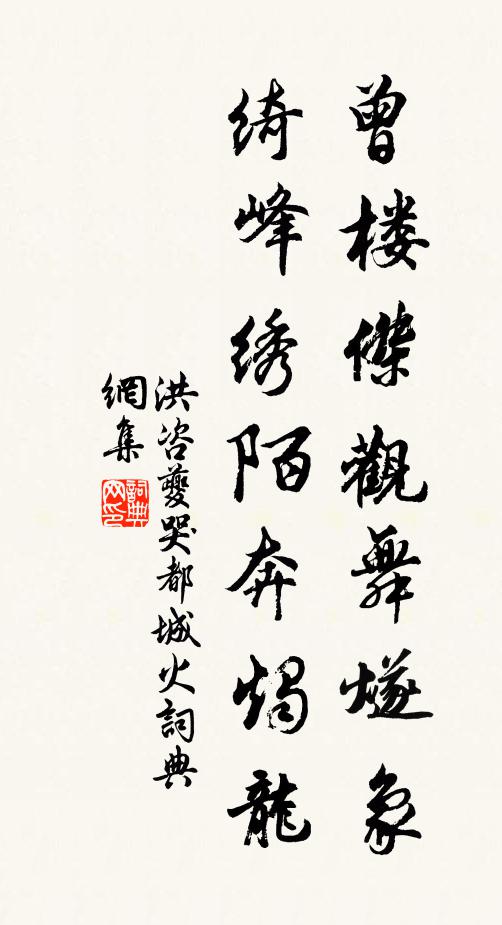 曾楼傑觀舞燧象
绮峰绣陌奔燭龍
洪咨夔哭都城火詞典
網集
詞典
网印